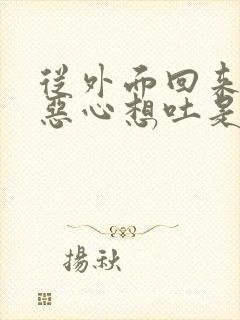 從外面回來
惡心想吐是
揚秋